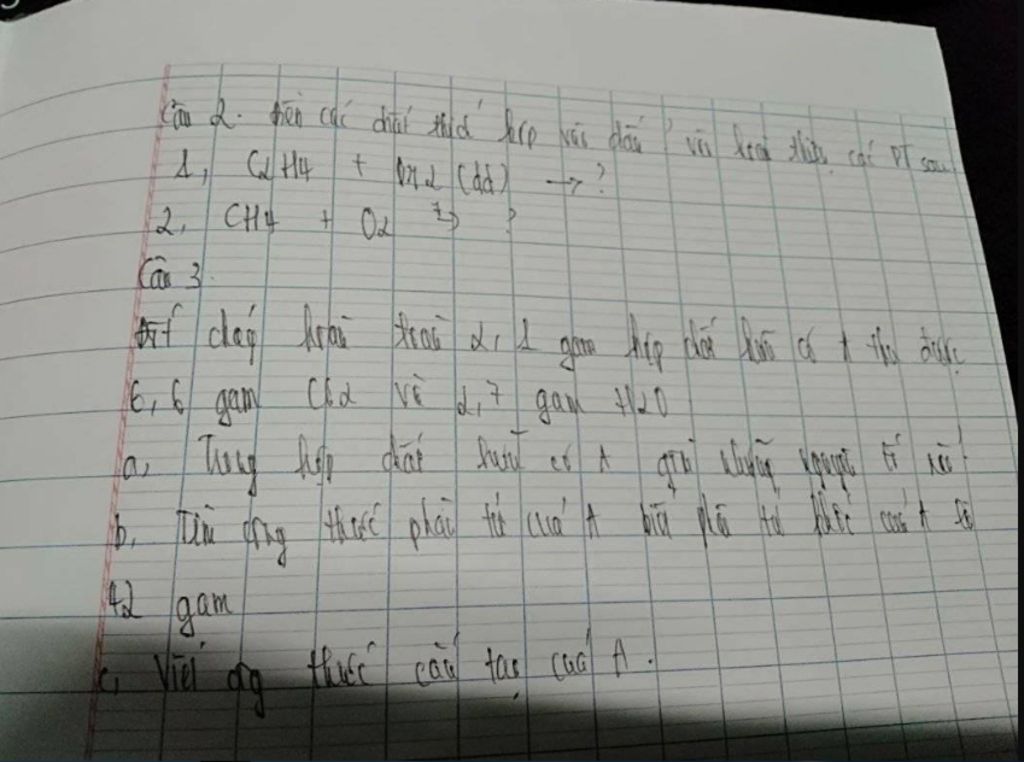 Câu 2. Điền các chất thích hợp vào dấu ? và hoàn thiện các PT sau
1, C2H4 + Br2 (dd) → ?
2, CH4 + O2 →
Câu 3.
Đốt cháy hoàn toàn 2,1 gam hợp chất hữu cơ A thu được
6,6 gam CO2 và 2,7 gam H2O
a, Trong hợp chất hữu cơ A gồm những nguyên tố nào?
b, Tìm công thức phân tử của A biết phân tử khối của A là
42 gam
c, Viết công thức cấu tạo của A.